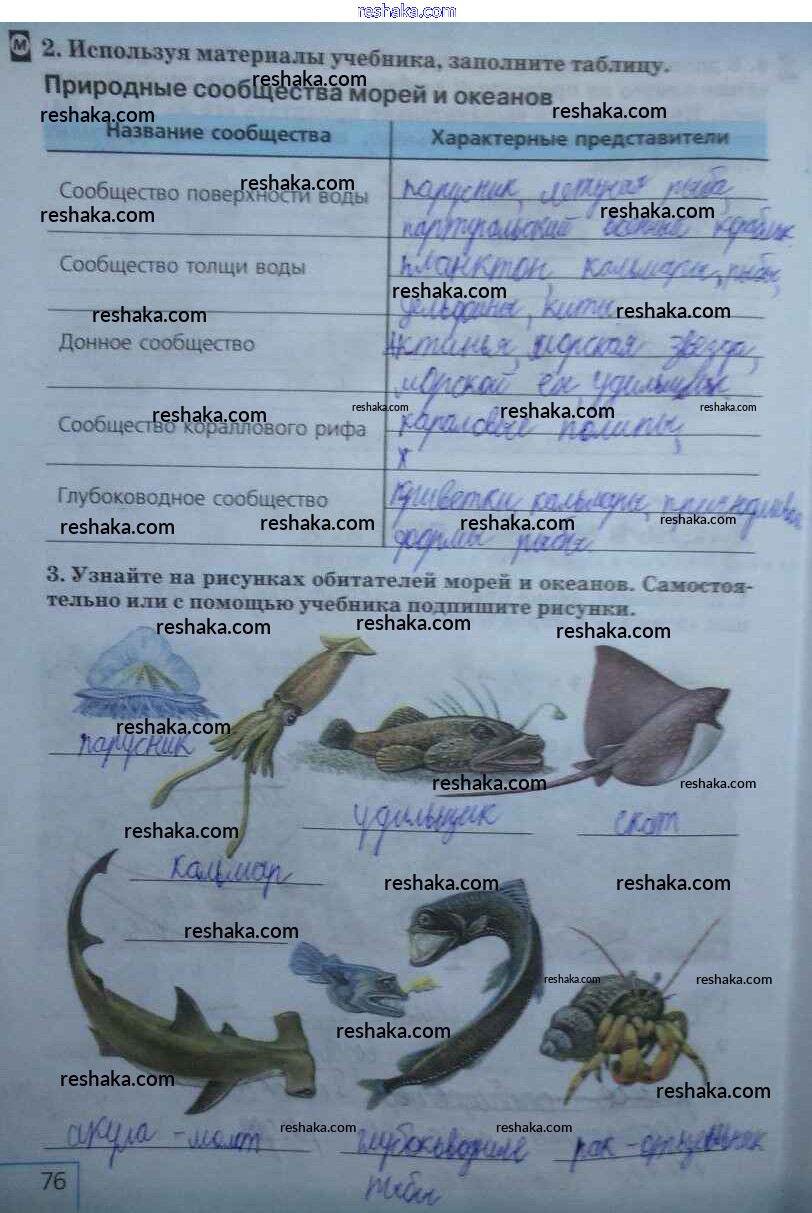 reshaka.com
М 2. Используя материалы учебника, заполните таблицу.
reshaka.com
Природные сообщества морей и океанов
reshaka.com reshaka.com
Название сообщества Характерные представители
reshaka.com
Сообщество поверхности воды парусник, летучая рыба,
reshaka.com reshaka.com
португальский кораблик
Сообщество толщи воды планктон, кальмары, рыбы,
reshaka.com
reshaka.com дельфины, киты reshaka.com
Донное сообщество Актинья, морская звезда,
морской ёж, удильщик
reshaka.com reshaka.com reshaka.com reshaka.com
Сообщество кораллового рифа караловые полипы,
х
Глубоководное сообщество Криветки кальмары,
reshaka.com reshaka.com reshaka.com reshaka.com
формы рыбы.
3. Узнайте на рисунках обитателей морей и океанов. Самостоя-
тельно или с помощью учебника подпишите рисунки.
reshaka.com reshaka.com reshaka.com
reshaka.com
парусник
reshaka.com reshaka.com
удильщик скат
reshaka.com
кальмар
reshaka.com reshaka.com
reshaka.com
reshaka.com reshaka.com
reshaka.com
reshaka.com reshaka.com
reshaka.com reshaka.com
акула - молот глубоководные рак - отшельник
рыбы
76